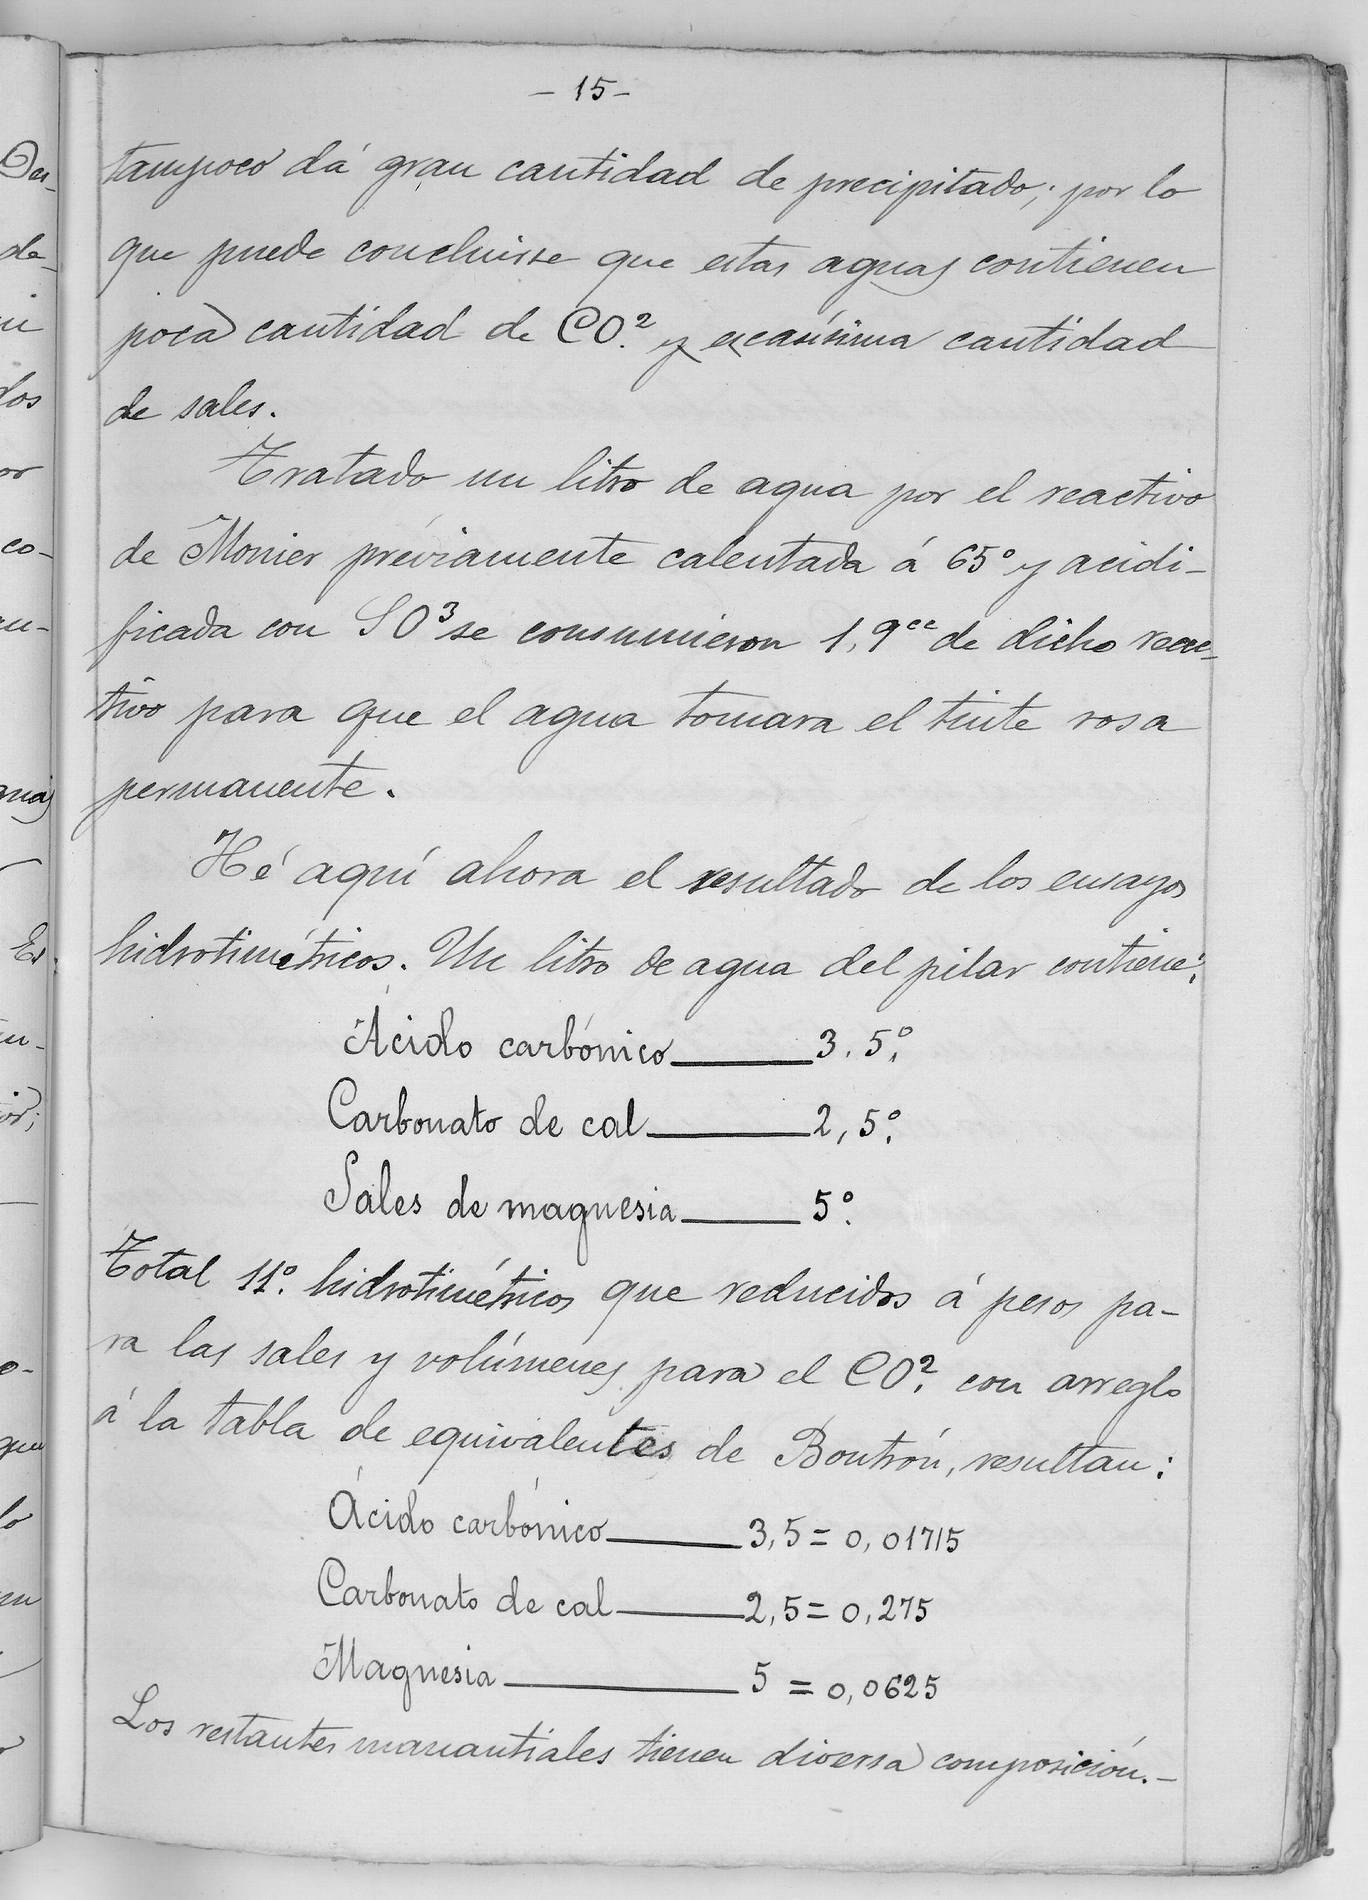 - 15 -
tampoco dá gran cantidad de precipitado; por lo
que puede concluirse que estas aguas contienen
poca cantidad de CO.² y escasísima cantidad
de sales.
Tratado un litro de agua por el reactivo
de Monier préviamente calentada á 65° y acidi-
ficada con SO³ se consumieron 1,9cc de dicho reac-
tivo para que el agua tomara el tinte rosa
permanente.
Hé aquí ahora el resultado de los ensayos
hidrotimétricos. Un litro de agua del pilar contiene:
Ácido carbónico ______ 3.5°.
Carbonato de cal ______ 2,5°.
Sales de magnesia ______ 5°.
Total 11°. hidrotimétricos que reducidos á pesos pa-
ra las sales y volúmenes para el CO². con arreglo
á la tabla de equivalentes de Boutrón, resultan:
Ácido carbónico ______ 3,5 = 0,01715
Carbonato de cal ______ 2,5 = 0,275
Magnesia ______ 5 = 0,0625
Los restantes manantiales tienen diversa composición.-